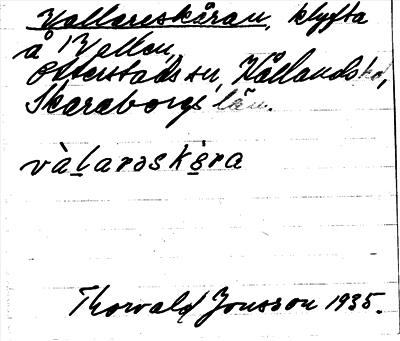 Vallareskåran, klyfta
å Vallen,
Otterstads sn, Kållands hd,
Skaraborgs län.
vàlarəskɵ̀ra
Thorvald Jonsson 1935.